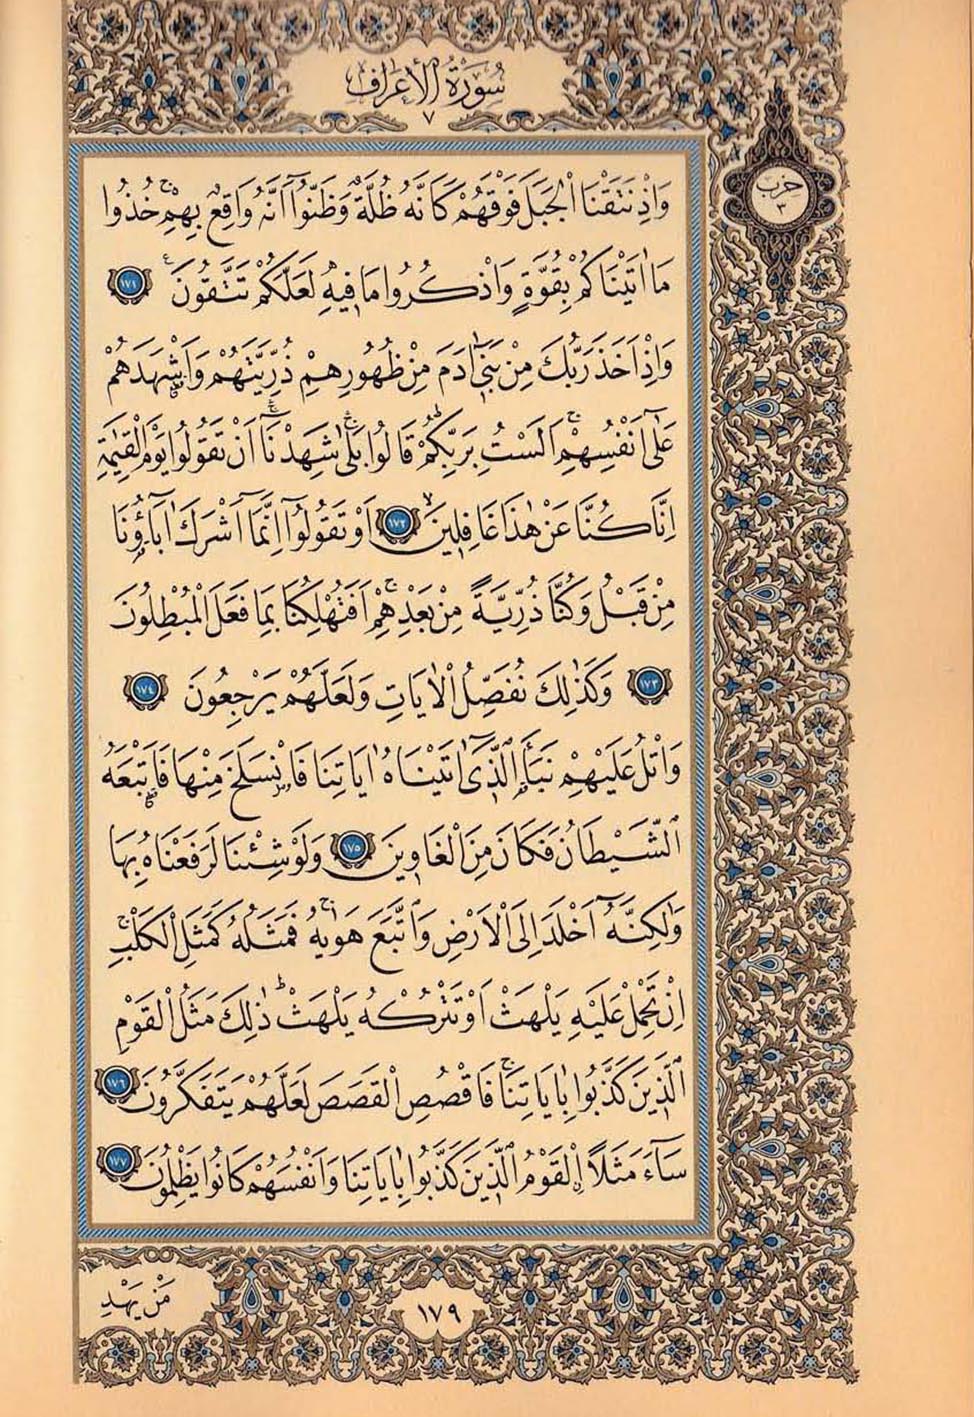 سُورَةُ الْأَعْرَافِ
٧
حِزْب
٣
وَاِذْ نَتَقْنَا الْجَبَلَ فَوْقَهُمْ كَاَنَّهُ ظُلَّةٌ وَظَنُّٓوا اَنَّهُ وَاقِعٌ بِهِمْۚ خُذُوا
مَٓا اٰتَيْنَاكُمْ بِقُوَّةٍ وَاذْكُرُوا مَا فٖيهِ لَعَلَّكُمْ تَتَّقُونَۚ ﴿١٧١﴾
وَاِذْ اَخَذَ رَبُّكَ مِنْ بَنٖٓي اٰدَمَ مِنْ ظُهُورِهِمْ ذُرِّيَّتَهُمْ وَاَشْهَدَهُمْ
عَلٰٓى اَنْفُسِهِمْۚ اَلَسْتُ بِرَبِّكُمْؕ قَالُوا بَلٰىۚۛ شَهِدْنَاۚۛ اَنْ تَقُولُوا يَوْمَ الْقِيٰمَةِ
اِنَّا كُنَّا عَنْ هٰذَا غَافِلٖينَۙ ﴿١٧٢﴾ اَوْ تَقُولُٓوا اِنَّمَٓا اَشْرَكَ اٰبَٓاؤُ۬نَا
مِنْ قَبْلُ وَكُنَّا ذُرِّيَّةً مِنْ بَعْدِهِمْۚ اَفَتُهْلِكُنَا بِمَا فَعَلَ الْمُبْطِلُونَ
﴿١٧٣﴾ وَكَذٰلِكَ نُفَصِّلُ الْاٰيَاتِ وَلَعَلَّهُمْ يَرْجِعُونَ ﴿١٧٤﴾
وَاتْلُ عَلَيْهِمْ نَبَاَ الَّذٖٓي اٰتَيْنَاهُ اٰيَاتِنَا فَانْسَلَخَ مِنْهَا فَاَتْبَعَهُ
الشَّيْطَانُ فَكَانَ مِنَ الْغَاوٖينَ ﴿١٧٥﴾ وَلَوْ شِئْنَا لَرَفَعْنَاهُ بِهَا
وَلٰكِنَّهُٓ اَخْلَدَ اِلَى الْاَرْضِ وَاتَّبَعَ هَوٰيهُۚ فَمَثَلُهُ كَمَثَلِ الْكَلْبِۚ
اِنْ تَحْمِلْ عَلَيْهِ يَلْهَثْ اَوْ تَتْرُكْهُ يَلْهَثْؕ ذٰلِكَ مَثَلُ الْقَوْمِ
الَّذٖينَ كَذَّبُوا بِاٰيَاتِنَاۚ فَاقْصُصِ الْقَصَصَ لَعَلَّهُمْ يَتَفَكَّرُونَ ﴿١٧٦﴾
سَٓاءَ مَثَلاًۨ الْقَوْمُ الَّذٖينَ كَذَّبُوا بِاٰيَاتِنَا وَاَنْفُسَهُمْ كَانُوا يَظْلِمُونَ ﴿١٧٧﴾
١٧٩
مَنْ يَهْدِ